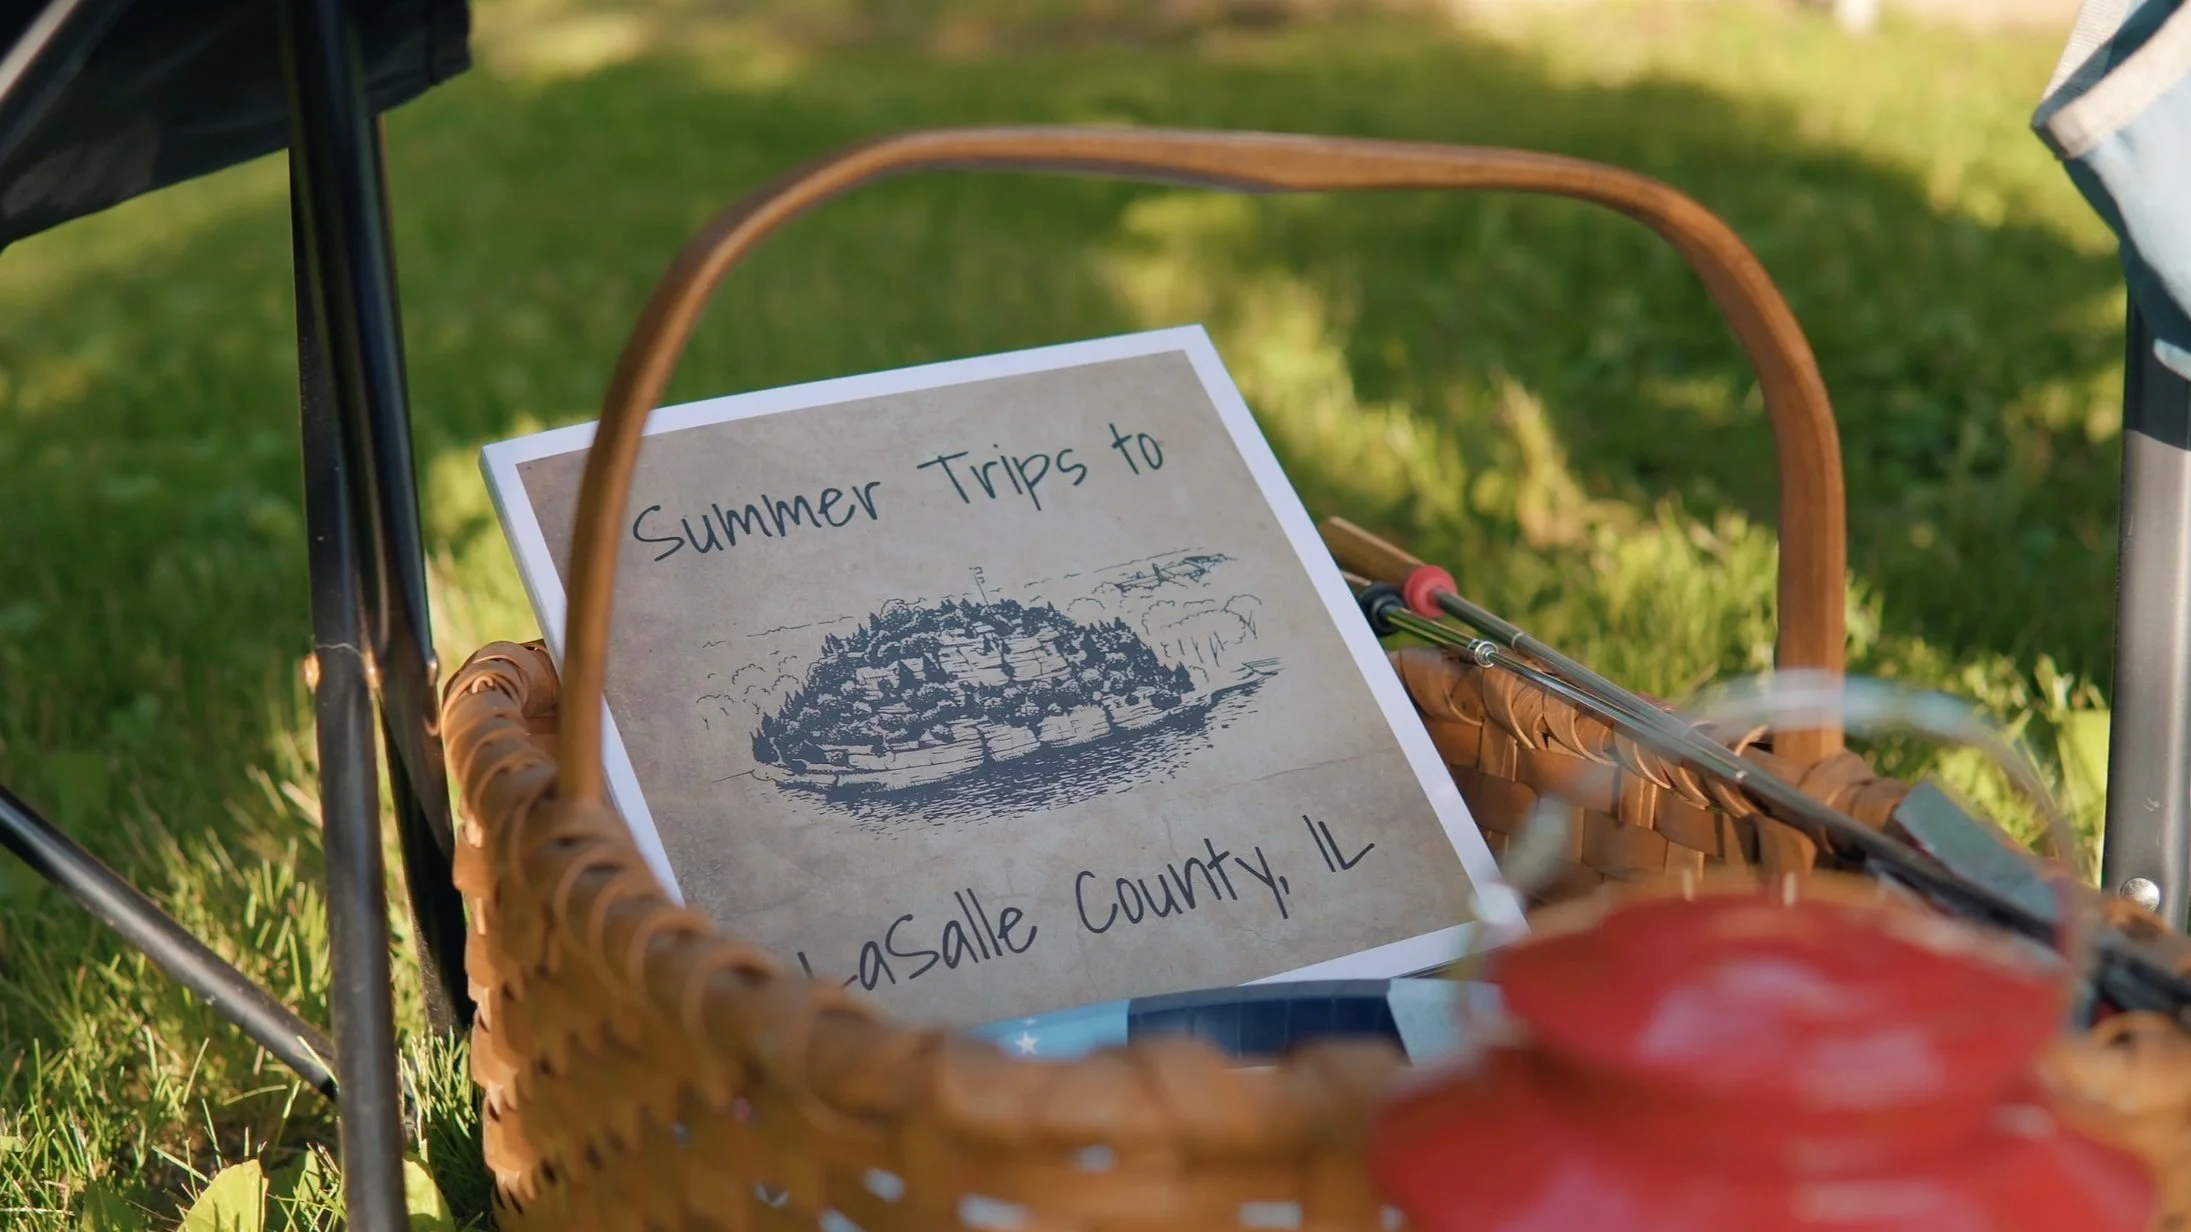 Summer Trips to
LaSalle County, IL